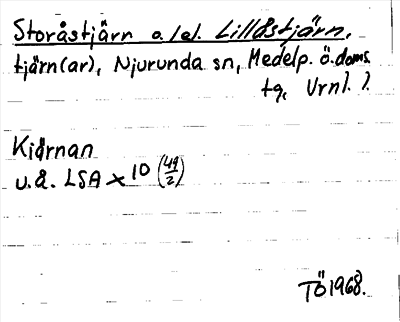 Storåstjärn o./el. Lillåstjärn,
tjärn(ar), Njurunda sn, Medelp. ö. doms.
tg, Urnl. l.
Kiärnan
u.å. LSA x 10 (49/2)
TÖ 1968.